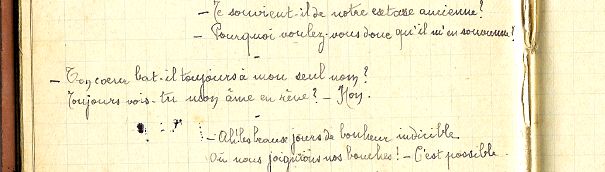 – Te souvient-il de notre extase ancienne?
– Pourquoi voulez-vous donc qu'il m'en souvienne?
– Ton cœur bat-il toujours à mon seul nom?
Toujours vois-tu mon âme en rêve? – Non.
– Ah! les beaux jours de bonheur indicible
Où nous joignions nos bouches! – C'est possible.